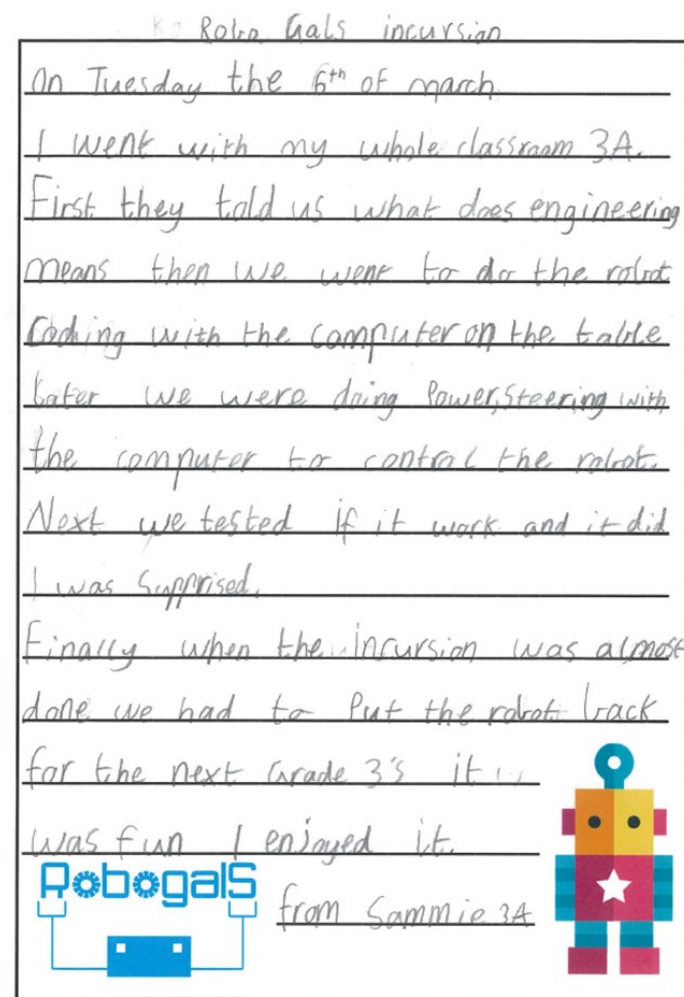 Robo Gals incursion
On Tuesday the 6th of march
I went with my whole classroom 3A.
First they told us what does engineering
means then we went to do the robot
coding with the computer on the table
Later we were doing Power, Steering with
the computer to control the robot.
Next we tested if it work and it did
I was Supprised.
Finally when the incursion was almost
done we had to Put the robot back
for the next Grade 3's it
was fun I enjoyed it.
RobogalS
from Sammie 3A